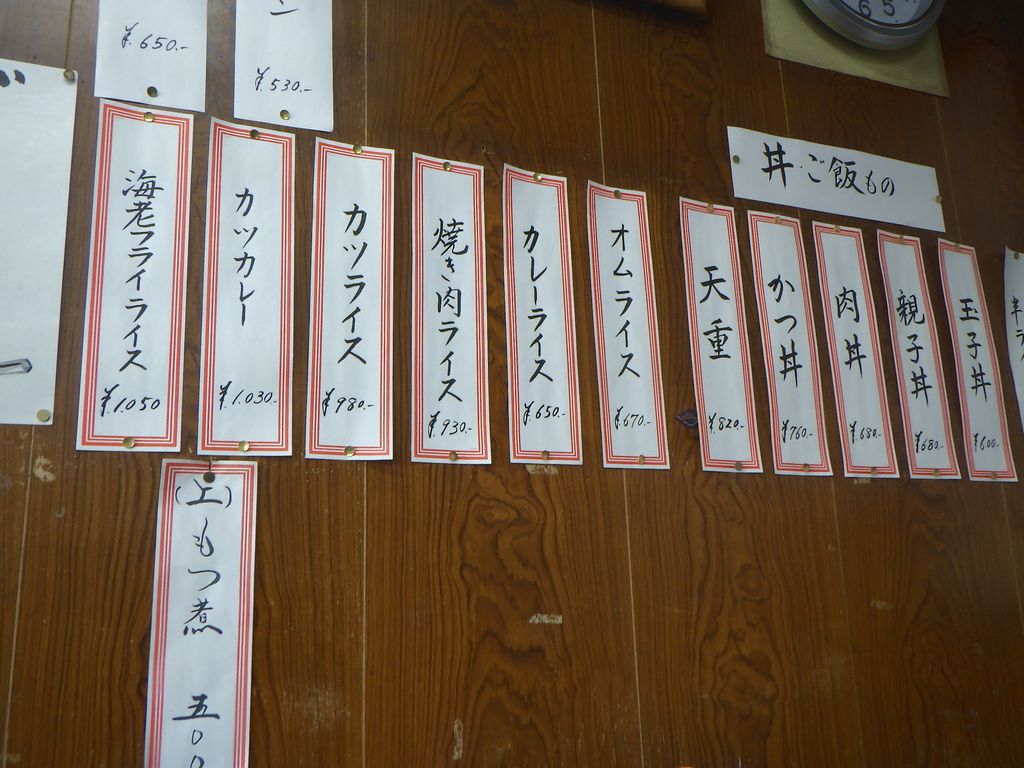 丼・ご飯もの
玉子丼 ¥600.-
親子丼 ¥680.-
肉丼 ¥680.-
かつ丼 ¥760.-
天重 ¥820.-
オムライス ¥670.-
カレーライス ¥650.-
焼き肉ライス ¥930.-
カツライス ¥980.-
カツカレー ¥1.030.-
海老フライライス ¥1.050
ン ¥530.-
¥650.-
(上)もつ煮 五00
6 5